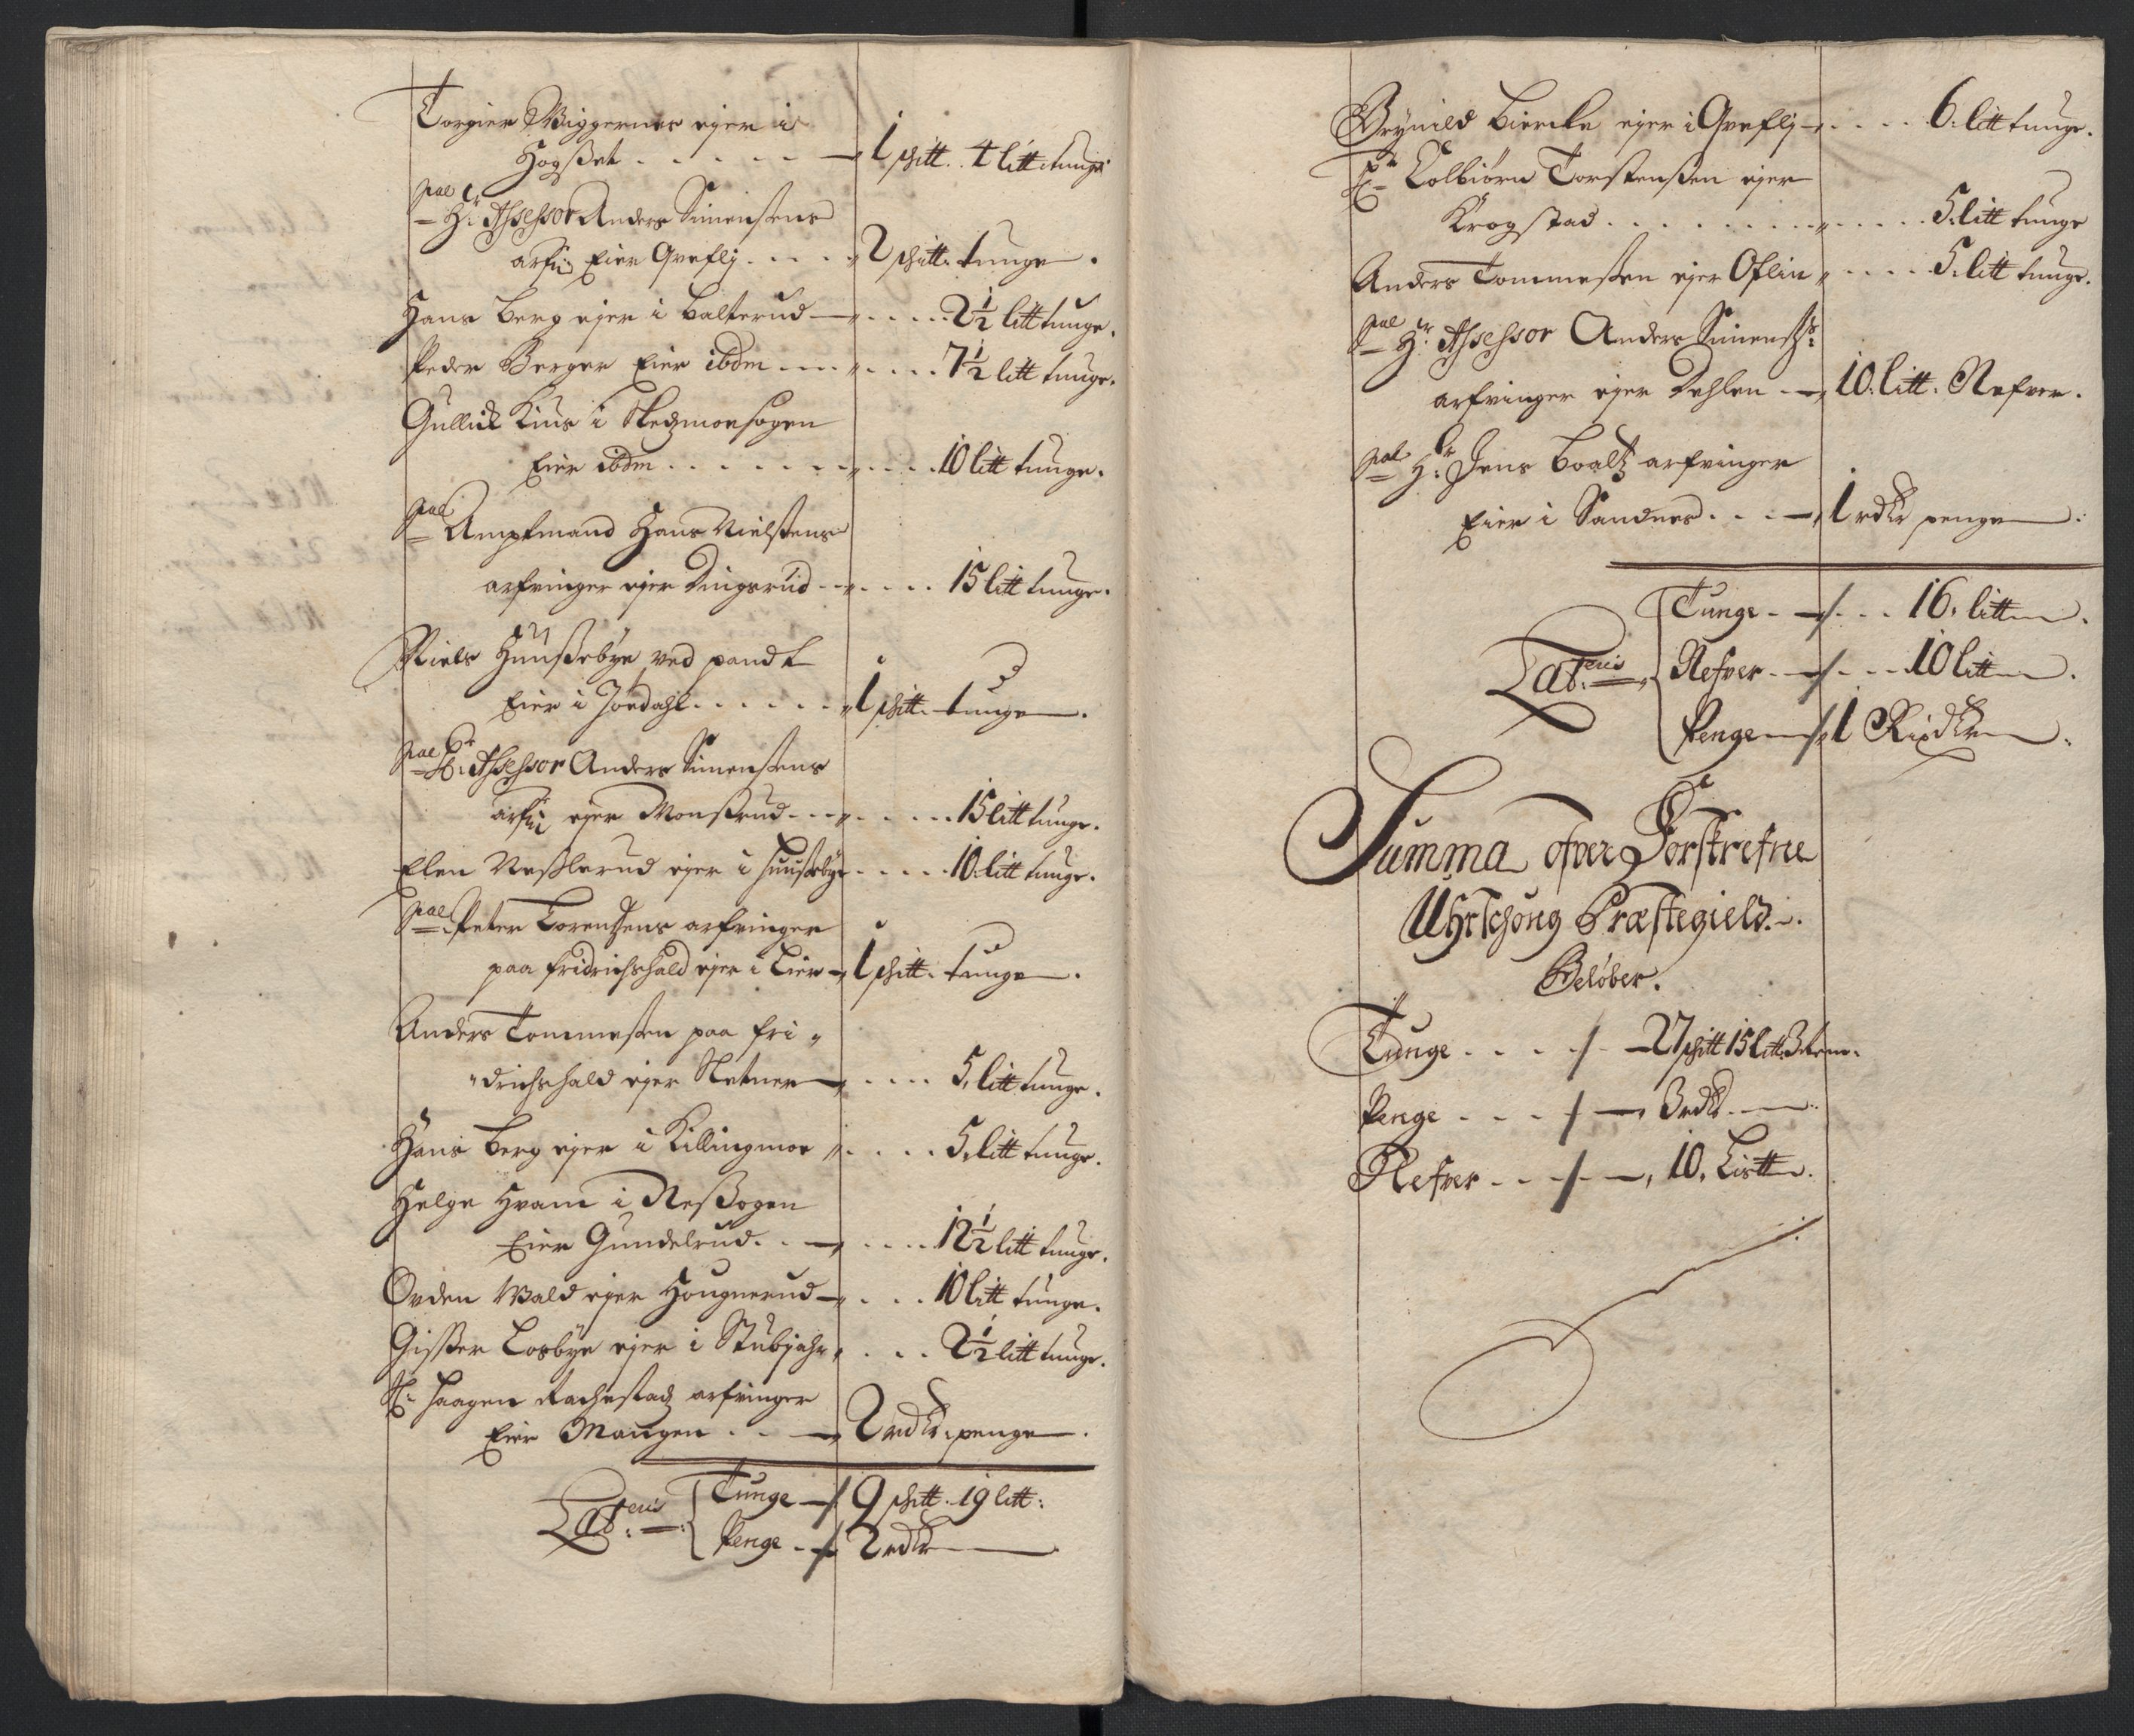 Torgier Wiggernes ejer i
Hogßet - - - - - 1 shitt. 4 litt tunge
Sal Hr. Assessor Anders Simensens
arfu: Eier Grefli - - - 2 shitt. tunge.
Hans Berg ejer i Balterud - - - - 2½ litt tunge.
Peder Berger Eier ibdm - - - - 7½ litt tunge.
Gullich Kius i Skedzmoe sogen
Eier ibdm - - - - 10 litt tunge.
Sal Amptmand Hans Nielsens
arfvinger ejer Dingsrud - - - - 15 litt tunge.
Niels Huusebye ved pandt
Eier i Jordahl - - - - 1 shitt. tunge.
Sal Hr. Assessor Anders Simensens
arfu: ejer Monsrud - - - - 15 litt tunge.
Elen Neßlerud ejer i Huusebye - - - - 10 litt tunge.
Sal Peter Lorenzens arfvinger
paa fridrichshald ejer i Lier - 1 shitt. tunge.
Anders Tommeßen paa fri "
" drichshald ejer Sletner - - - - 5 litt tunge.
Hans Berg ejer i Killingmoe - - - - 5 litt tunge.
Helge Hvam i Neßsogen
Eier Gundelrud - - - - 12½ litt tunge.
Orden Wald ejer Hougnerud - - - 10 litt tunge.
Gißer Losbye ejer i Stubjahr - - - 2½ litt tunge.
Sl: Haagen Rachestad arfvinger
Eier Mangen - - - 2 rdlr. penge.
Lateris: Tunge - 9 shitt. 19 litt:
Penge - 2 rdlr
Brynild Biercke ejer i Grefli - - - - 6. litt tunge.
Hr Colbiørn Torstenßen ejer
Krogstad - - - - 5. litt tunge
Anders Tommeßen ejer Oflin - - - - 5. litt tunge.
Sal Hr. Assessor Anders Simens:
arfvinger ejer Dehlen - 10. litt. Nefver.
Sal Hr. Jens Boaltz arfvinger
Eier i Sandnes - - - 1 rdlr penge.
Lateris: Tunge - - - 16. litt.
Nefver - - - 10 litt.
Penge - 1 Rixdlr.
Summa ofver Forskrefne
Uhrschoug Præstegield.
Beløber.
Tunge - - - - 27 shitt 15 litt 3 rem.
Penge - - - - 3 rdlr.
Nefver - - - - 10. Listt.